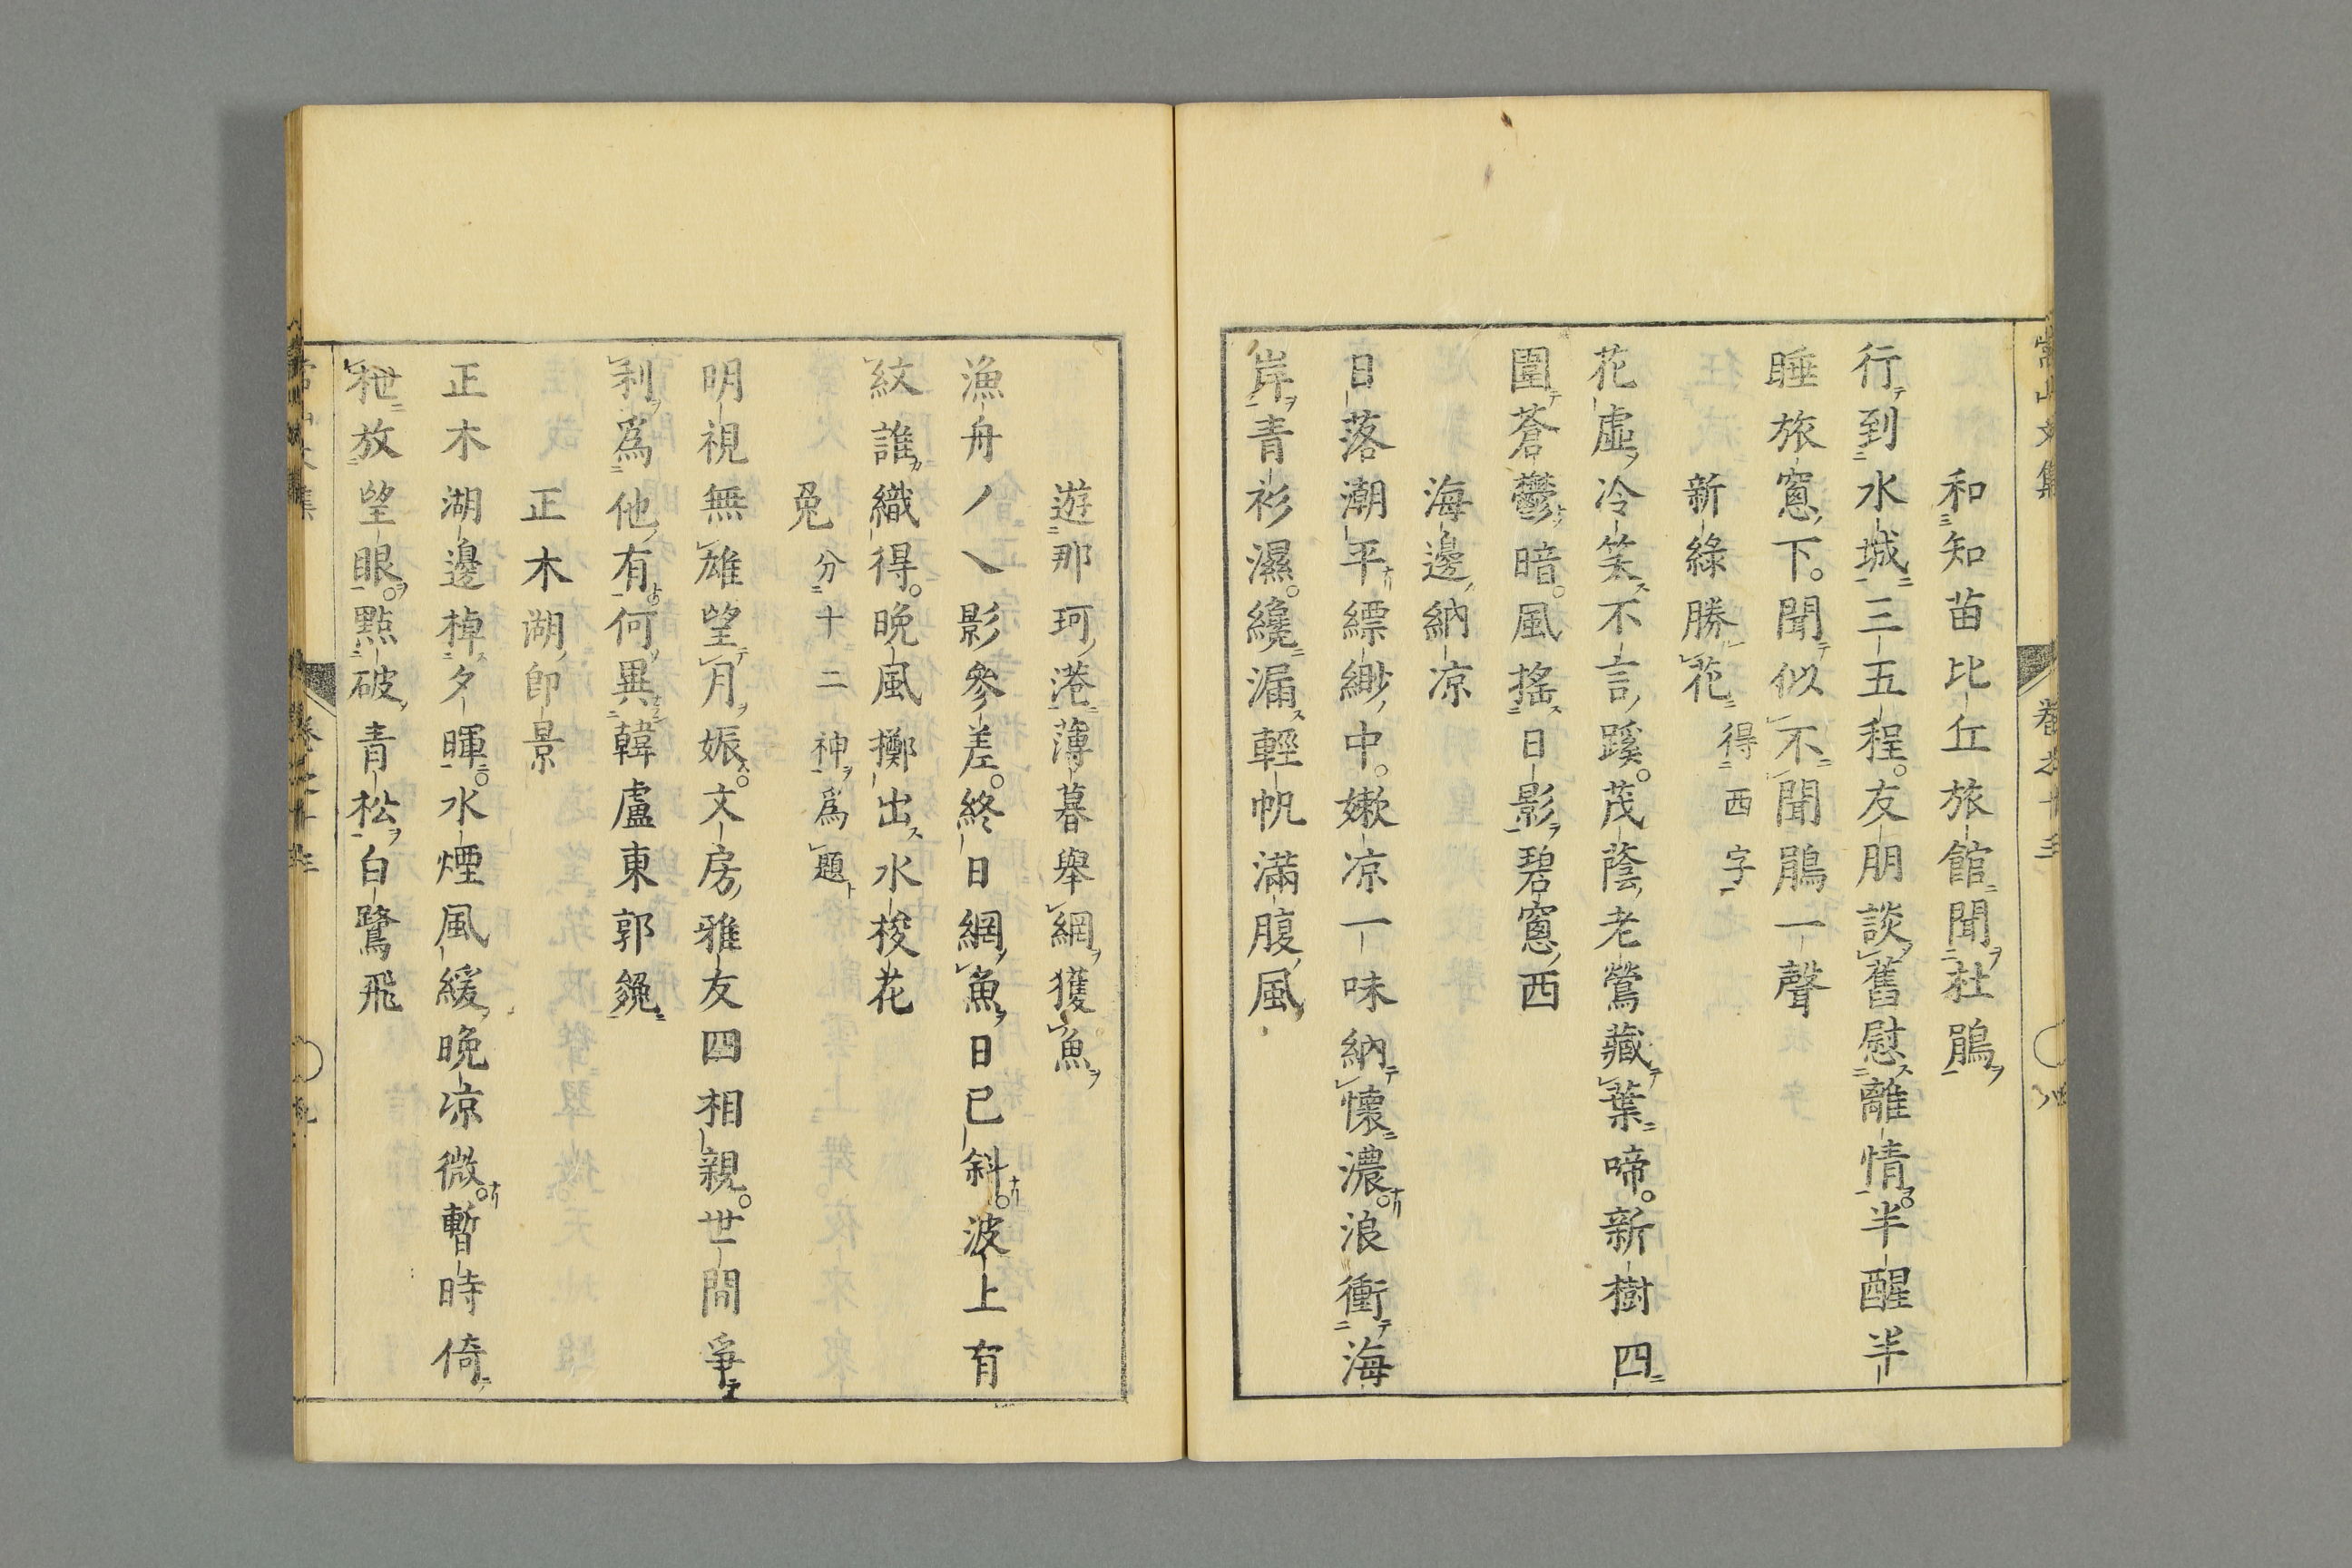 和知苗比丘旅館聞杜鵑
行到水城三五程。友朋談舊慰離情。半醒半
睡旅窓下。聞似不聞鵑一聲
新綠勝花 得西字
花虛冷笑不言蹊。茂蔭老鶯藏葉啼。新樹四
圍蒼鬱暗。風搖日影碧窓西
海邊納凉
日落潮平縹緲中。嫩凉一味納懷濃。浪衝海
岸青衫濕。纔漏輕帆滿腹風
遊那珂港薄暮舉網獲魚
漁舟ノ乀影參差。終日網魚日已斜。波上有
紋誰織得。晩風擲出水梭花
兔 分十二神爲題
明視無雄望月娠。文房雅友四相親。世間爭
利爲他有何異韓盧東郭㕙
正木湖卽景
正木湖邊棹夕暉。水煙風緩晩凉微。暫時倚
枻放望眼。點破青松白鷺飛